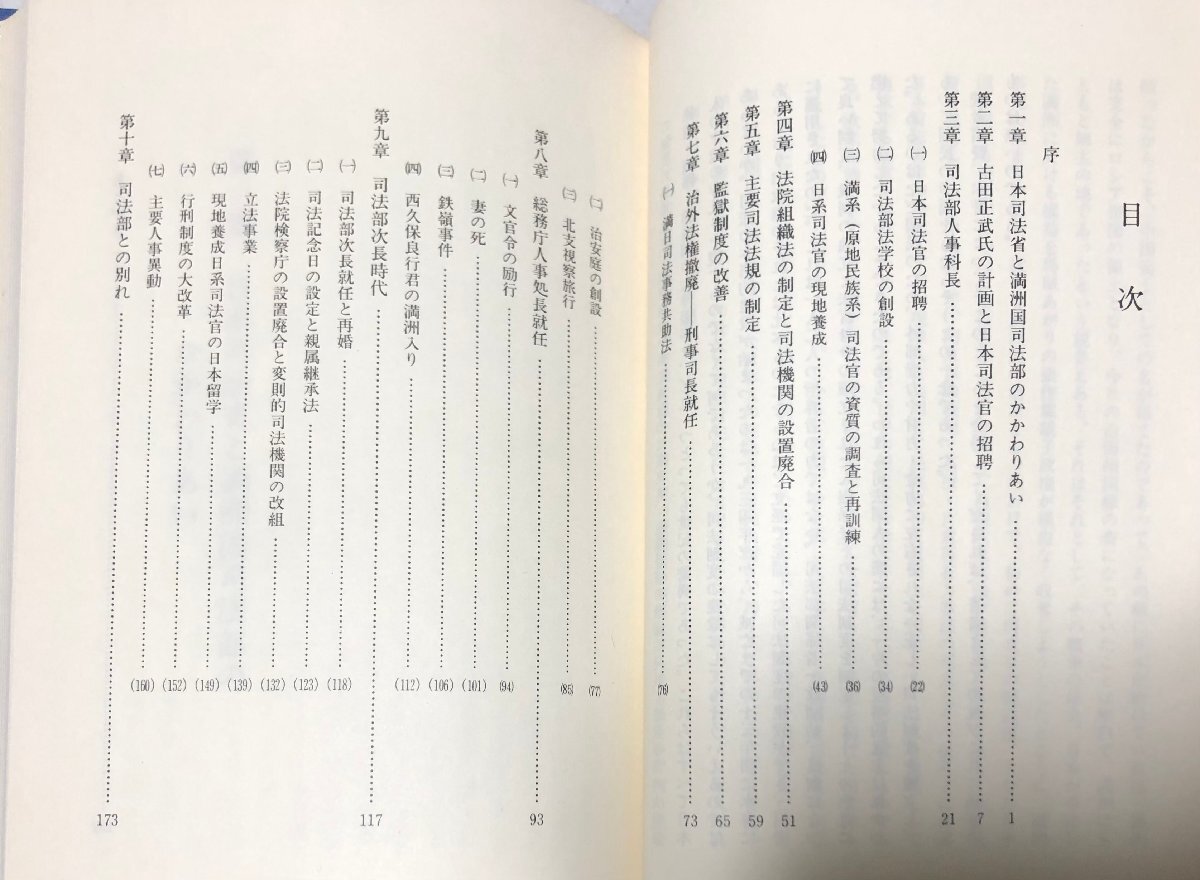 目次
序
第一章 日本司法省と満洲国司法部のかかわりあい……………1
第二章 古田正武氏の計画と日本司法官の招聘……………7
第三章 司法部人事科長……………21
㈠ 日本司法官の招聘……………(22)
㈡ 司法部法学校の創設……………(34)
㈢ 満系(原地民族系)司法官の資質の調査と再訓練……………(36)
㈣ 日系司法官の現地養成……………(43)
第四章 法院組織法の制定と司法機関の設置廃合……………51
第五章 主要司法法規の制定……………59
第六章 監獄制度の改善……………65
第七章 治外法権撤廃――刑事司長就任……………73
㈠ 満日司法事務共助法……………(76)
㈡ 治安庭の創設……………(77)
㈢ 北支視察旅行……………(85)
第八章 総務庁人事処長就任……………93
㈠ 文官令の励行……………(94)
㈡ 妻の死……………(101)
㈢ 鉄嶺事件……………(106)
㈣ 西久保良行君の満洲入り……………(112)
第九章 司法部次長時代……………117
㈠ 司法部次長就任と再婚……………(118)
㈡ 司法記念日の設定と親属継承法……………(123)
㈢ 法院検察庁の設置廃合と変則的司法機関の改組……………(132)
㈣ 立法事業……………(139)
㈤ 現地養成日系司法官の日本留学……………(149)
㈥ 行刑制度の大改革……………(152)
㈦ 主要人事異動……………(160)
第十章 司法部との別れ……………173